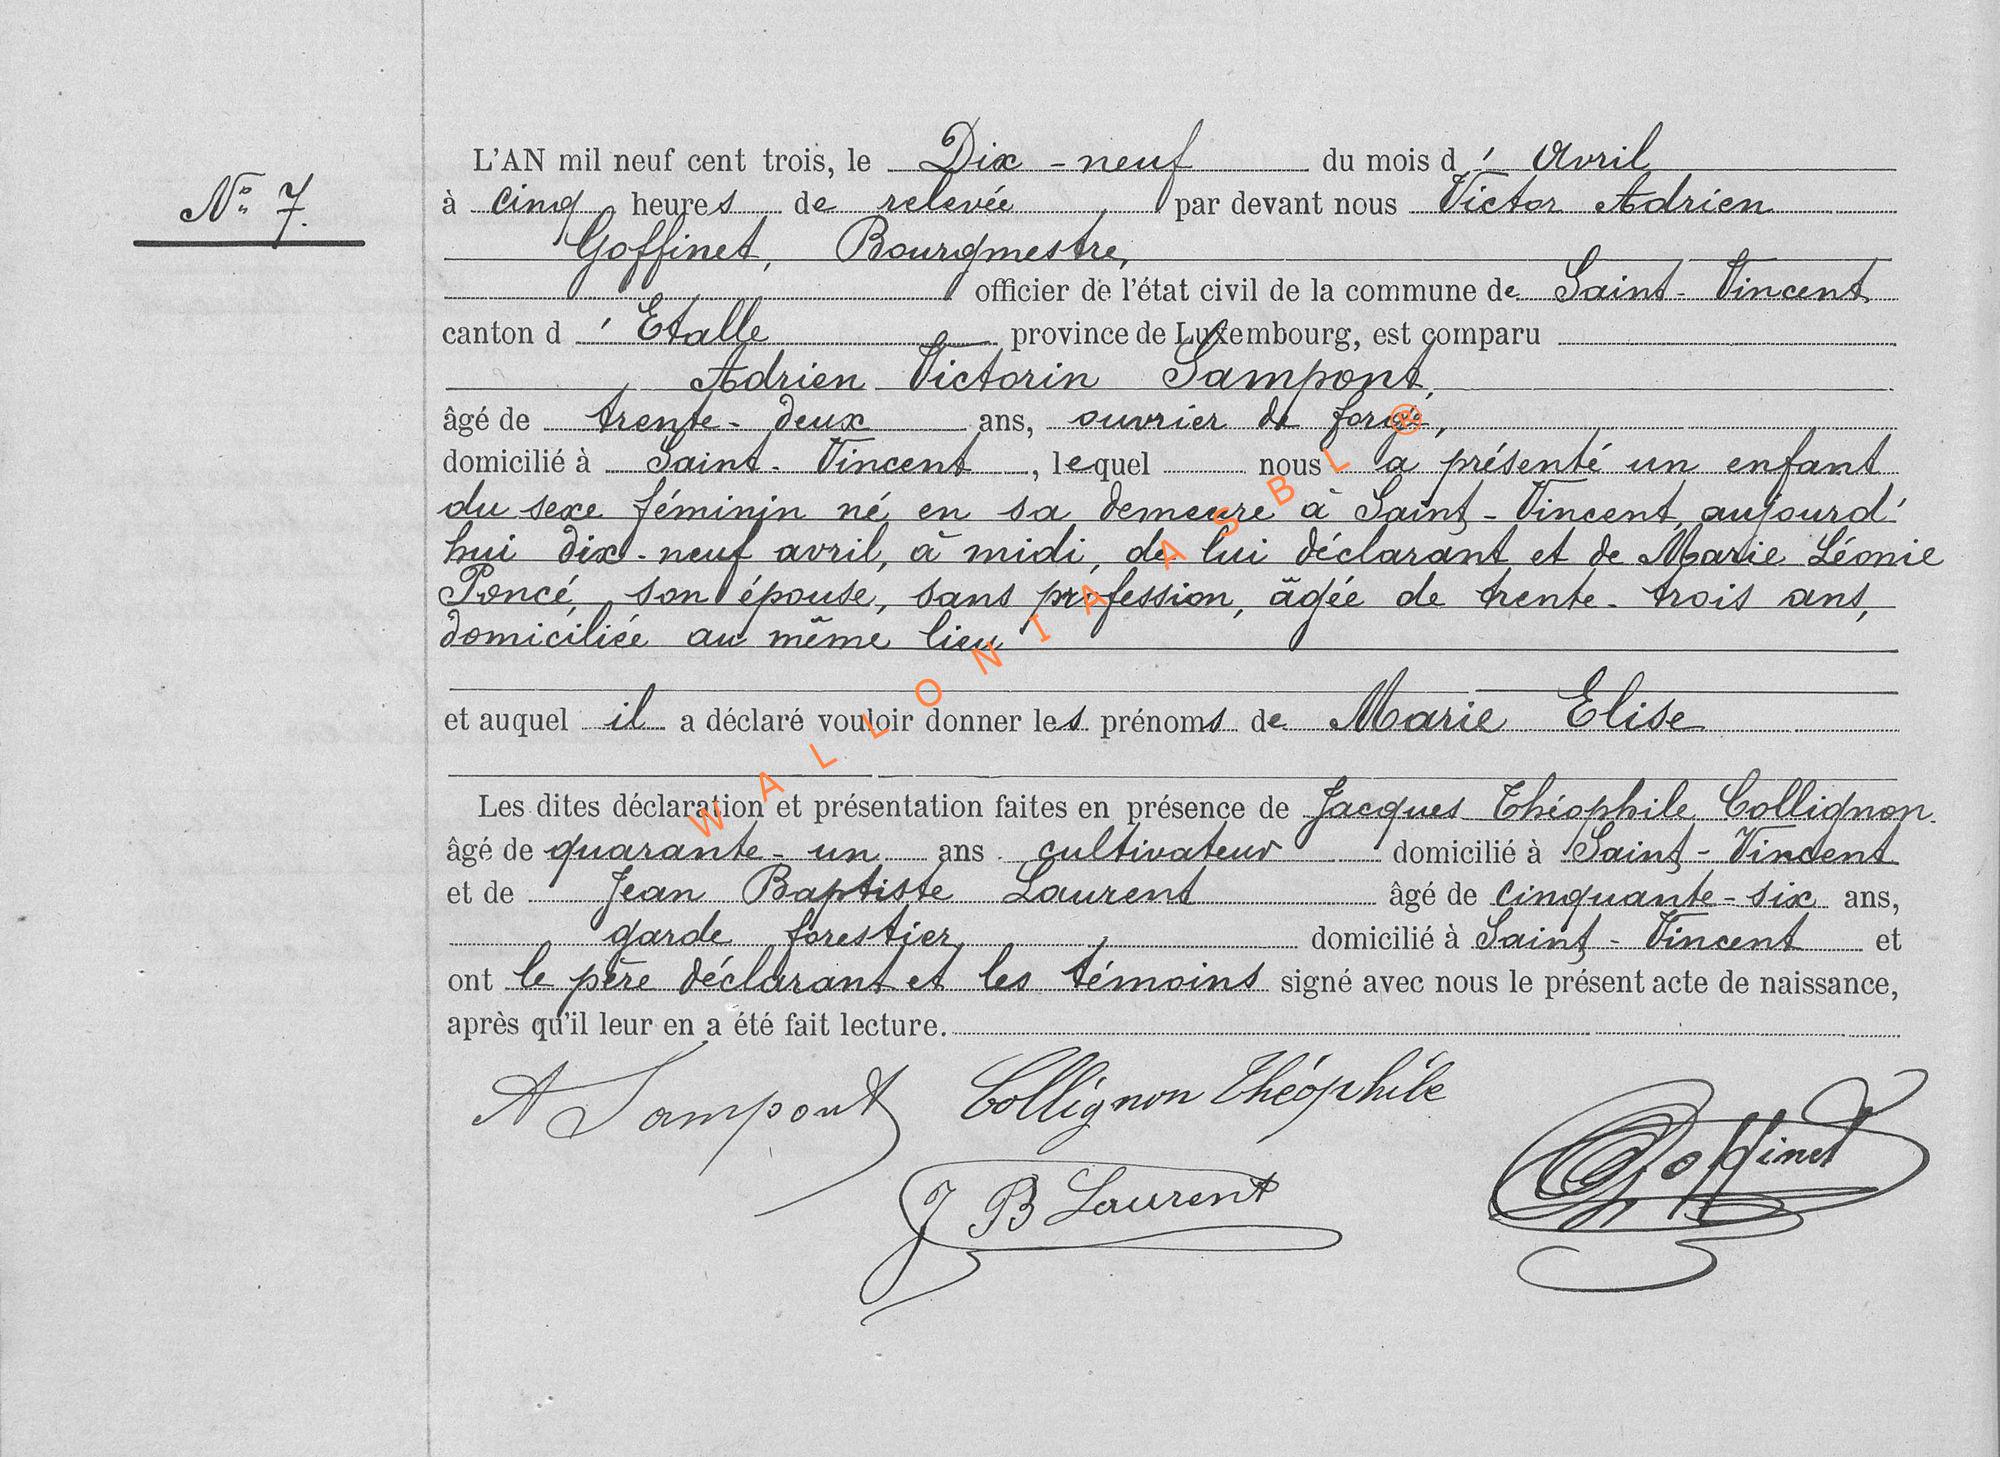 N° 7.
L'AN mil neuf cent trois, le Dix-neuf du mois d' Avril
à cinq heures de relevée par devant nous Victor Adrien
Goffinet, Bourgmestre,
officier de l'état civil de la commune de Saint-Vincent
canton d' Etalle province de Luxembourg, est comparu
Adrien Victorin Sampont,
âgé de trente-deux ans, ouvrier de forge,
domicilié à Saint-Vincent, lequel nous a présenté un enfant
du sexe féminin né en sa demeure à Saint-Vincent, aujourd'
hui dix-neuf avril, à midi, de lui déclarant et de Marie Léonie
Poncé, son épouse, sans profession, âgée de trente-trois ans,
domiciliée au même lieu
et auquel il a déclaré vouloir donner les prénoms de Marie Elise
Les dites déclaration et présentation faites en présence de Jacques Théophile Collignon
âgé de quarante-un ans cultivateur domicilié à Saint-Vincent
et de Jean Baptiste Laurent âgé de cinquante-six ans,
garde forestier, domicilié à Saint-Vincent et
ont le père déclarant et les témoins signé avec nous le présent acte de naissance,
après qu'il leur en a été fait lecture.
A Sampont Collignon Théophile
J B Laurent Goffinet
WALLONIA ASBL ®